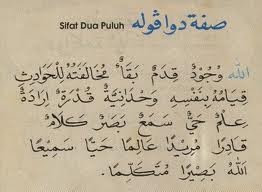 صفة دوا ڤوله
Sifat Dua Puluh
الله وُجُودْ قِدَمْ بَقَأْ مُخَالَفَتُهُ لِلْحَوَادِثِ
قِيَامُهُ بِنَفْسِهِ وَحْدَانِيَّةْ قُدْرَةْ إِرَادَةْ
عِلْمْ حَيَّ سَمَعْ بَصَرْ كَلَامْ
قَادِرًا مُرِيْدًا عَالِمًا حَيًّا سَمِيْعًا
اللهُ بَصِيْرًا مُتَكَلِّمًا.